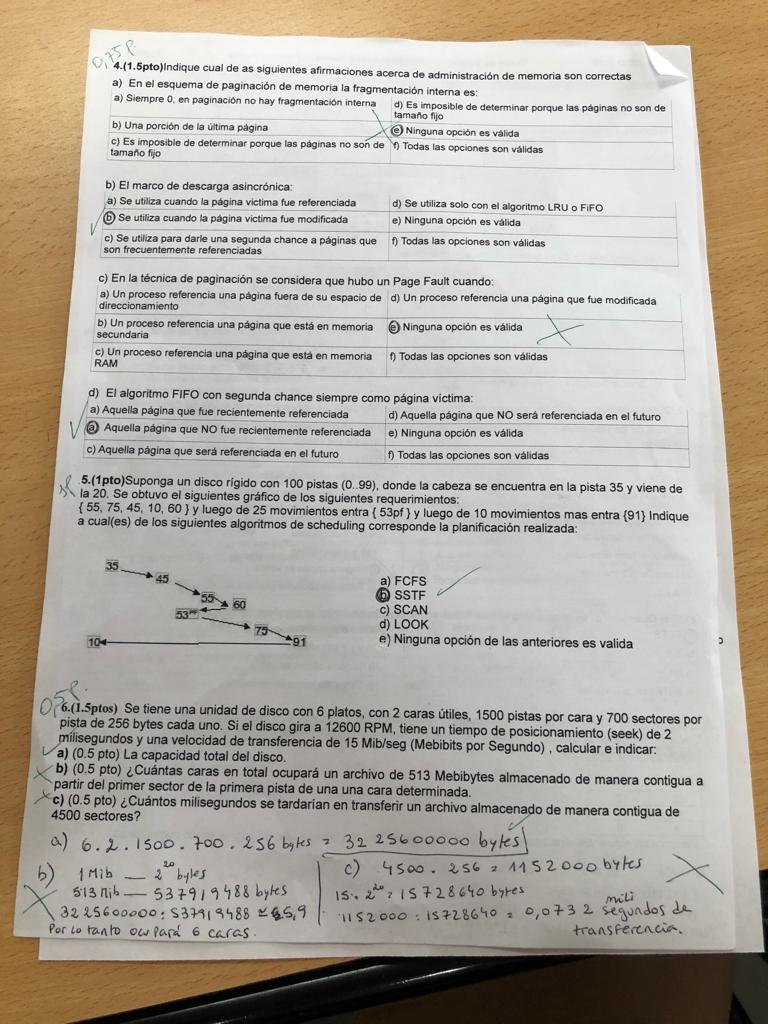 0,75 P.
4.(1.5pto)Indique cual de as siguientes afirmaciones acerca de administración de memoria son correctas
a) En el esquema de paginación de memoria la fragmentación interna es:
a) Siempre 0, en paginación no hay fragmentación interna
d) Es imposible de determinar porque las páginas no son de
tamaño fijo
b) Una porción de la última página
e) Ninguna opción es válida
c) Es imposible de determinar porque las páginas no son de
tamaño fijo
f) Todas las opciones son válidas
b) El marco de descarga asincrónica:
a) Se utiliza cuando la página victima fue referenciada
d) Se utiliza solo con el algoritmo LRU o FiFO
b) Se utiliza cuando la página victima fue modificada
e) Ninguna opción es válida
c) Se utiliza para darle una segunda chance a páginas que
son frecuentemente referenciadas
f) Todas las opciones son válidas
c) En la técnica de paginación se considera que hubo un Page Fault cuando:
a) Un proceso referencia una página fuera de su espacio de
direccionamiento
d) Un proceso referencia una página que fue modificada
b) Un proceso referencia una página que está en memoria
secundaria
e) Ninguna opción es válida
c) Un proceso referencia una página que está en memoria
RAM
f) Todas las opciones son válidas
d) El algoritmo FIFO con segunda chance siempre como página víctima:
a) Aquella página que fue recientemente referenciada
d) Aquella página que NO será referenciada en el futuro
a) Aquella página que NO fue recientemente referenciada
e) Ninguna opción es válida
c) Aquella página que será referenciada en el futuro
f) Todas las opciones son válidas
5.(1pto)Suponga un disco rígido con 100 pistas (0..99), donde la cabeza se encuentra en la pista 35 y viene de
la 20. Se obtuvo el siguientes gráfico de los siguientes requerimientos:
{ 55, 75, 45, 10, 60 } y luego de 25 movimientos entra { 53pf } y luego de 10 movimientos mas entra {91} Indique
a cual(es) de los siguientes algoritmos de scheduling corresponde la planificación realizada:
35
45
55
60
53PF
75
10
91
a) FCFS
b) SSTF
c) SCAN
d) LOOK
e) Ninguna opción de las anteriores es valida
0,5 P.
6.(1.5ptos) Se tiene una unidad de disco con 6 platos, con 2 caras útiles, 1500 pistas por cara y 700 sectores por
pista de 256 bytes cada uno. Si el disco gira a 12600 RPM, tiene un tiempo de posicionamiento (seek) de 2
milisegundos y una velocidad de transferencia de 15 Mib/seg (Mebibits por Segundo) , calcular e indicar:
a) (0.5 pto) La capacidad total del disco.
b) (0.5 pto) ¿Cuántas caras en total ocupará un archivo de 513 Mebibytes almacenado de manera contigua a
partir del primer sector de la primera pista de una una cara determinada.
c) (0.5 pto) ¿Cuántos milisegundos se tardarían en transferir un archivo almacenado de manera contigua de
4500 sectores?
a) 6.2.1500.700.256 bytes = 3225600000 bytes
b) 1 Mib — 2^20 bytes
513 Mib — 537919488 bytes
3225600000 : 537919488 ≃ 5,9
Por lo tanto ocupará 6 caras.
c) 4500 . 256 = 1152000 bytes
15. 2^20 = 15728640 bytes
1152000 : 15728640 = 0,0732 mili segundos de
transferencia.